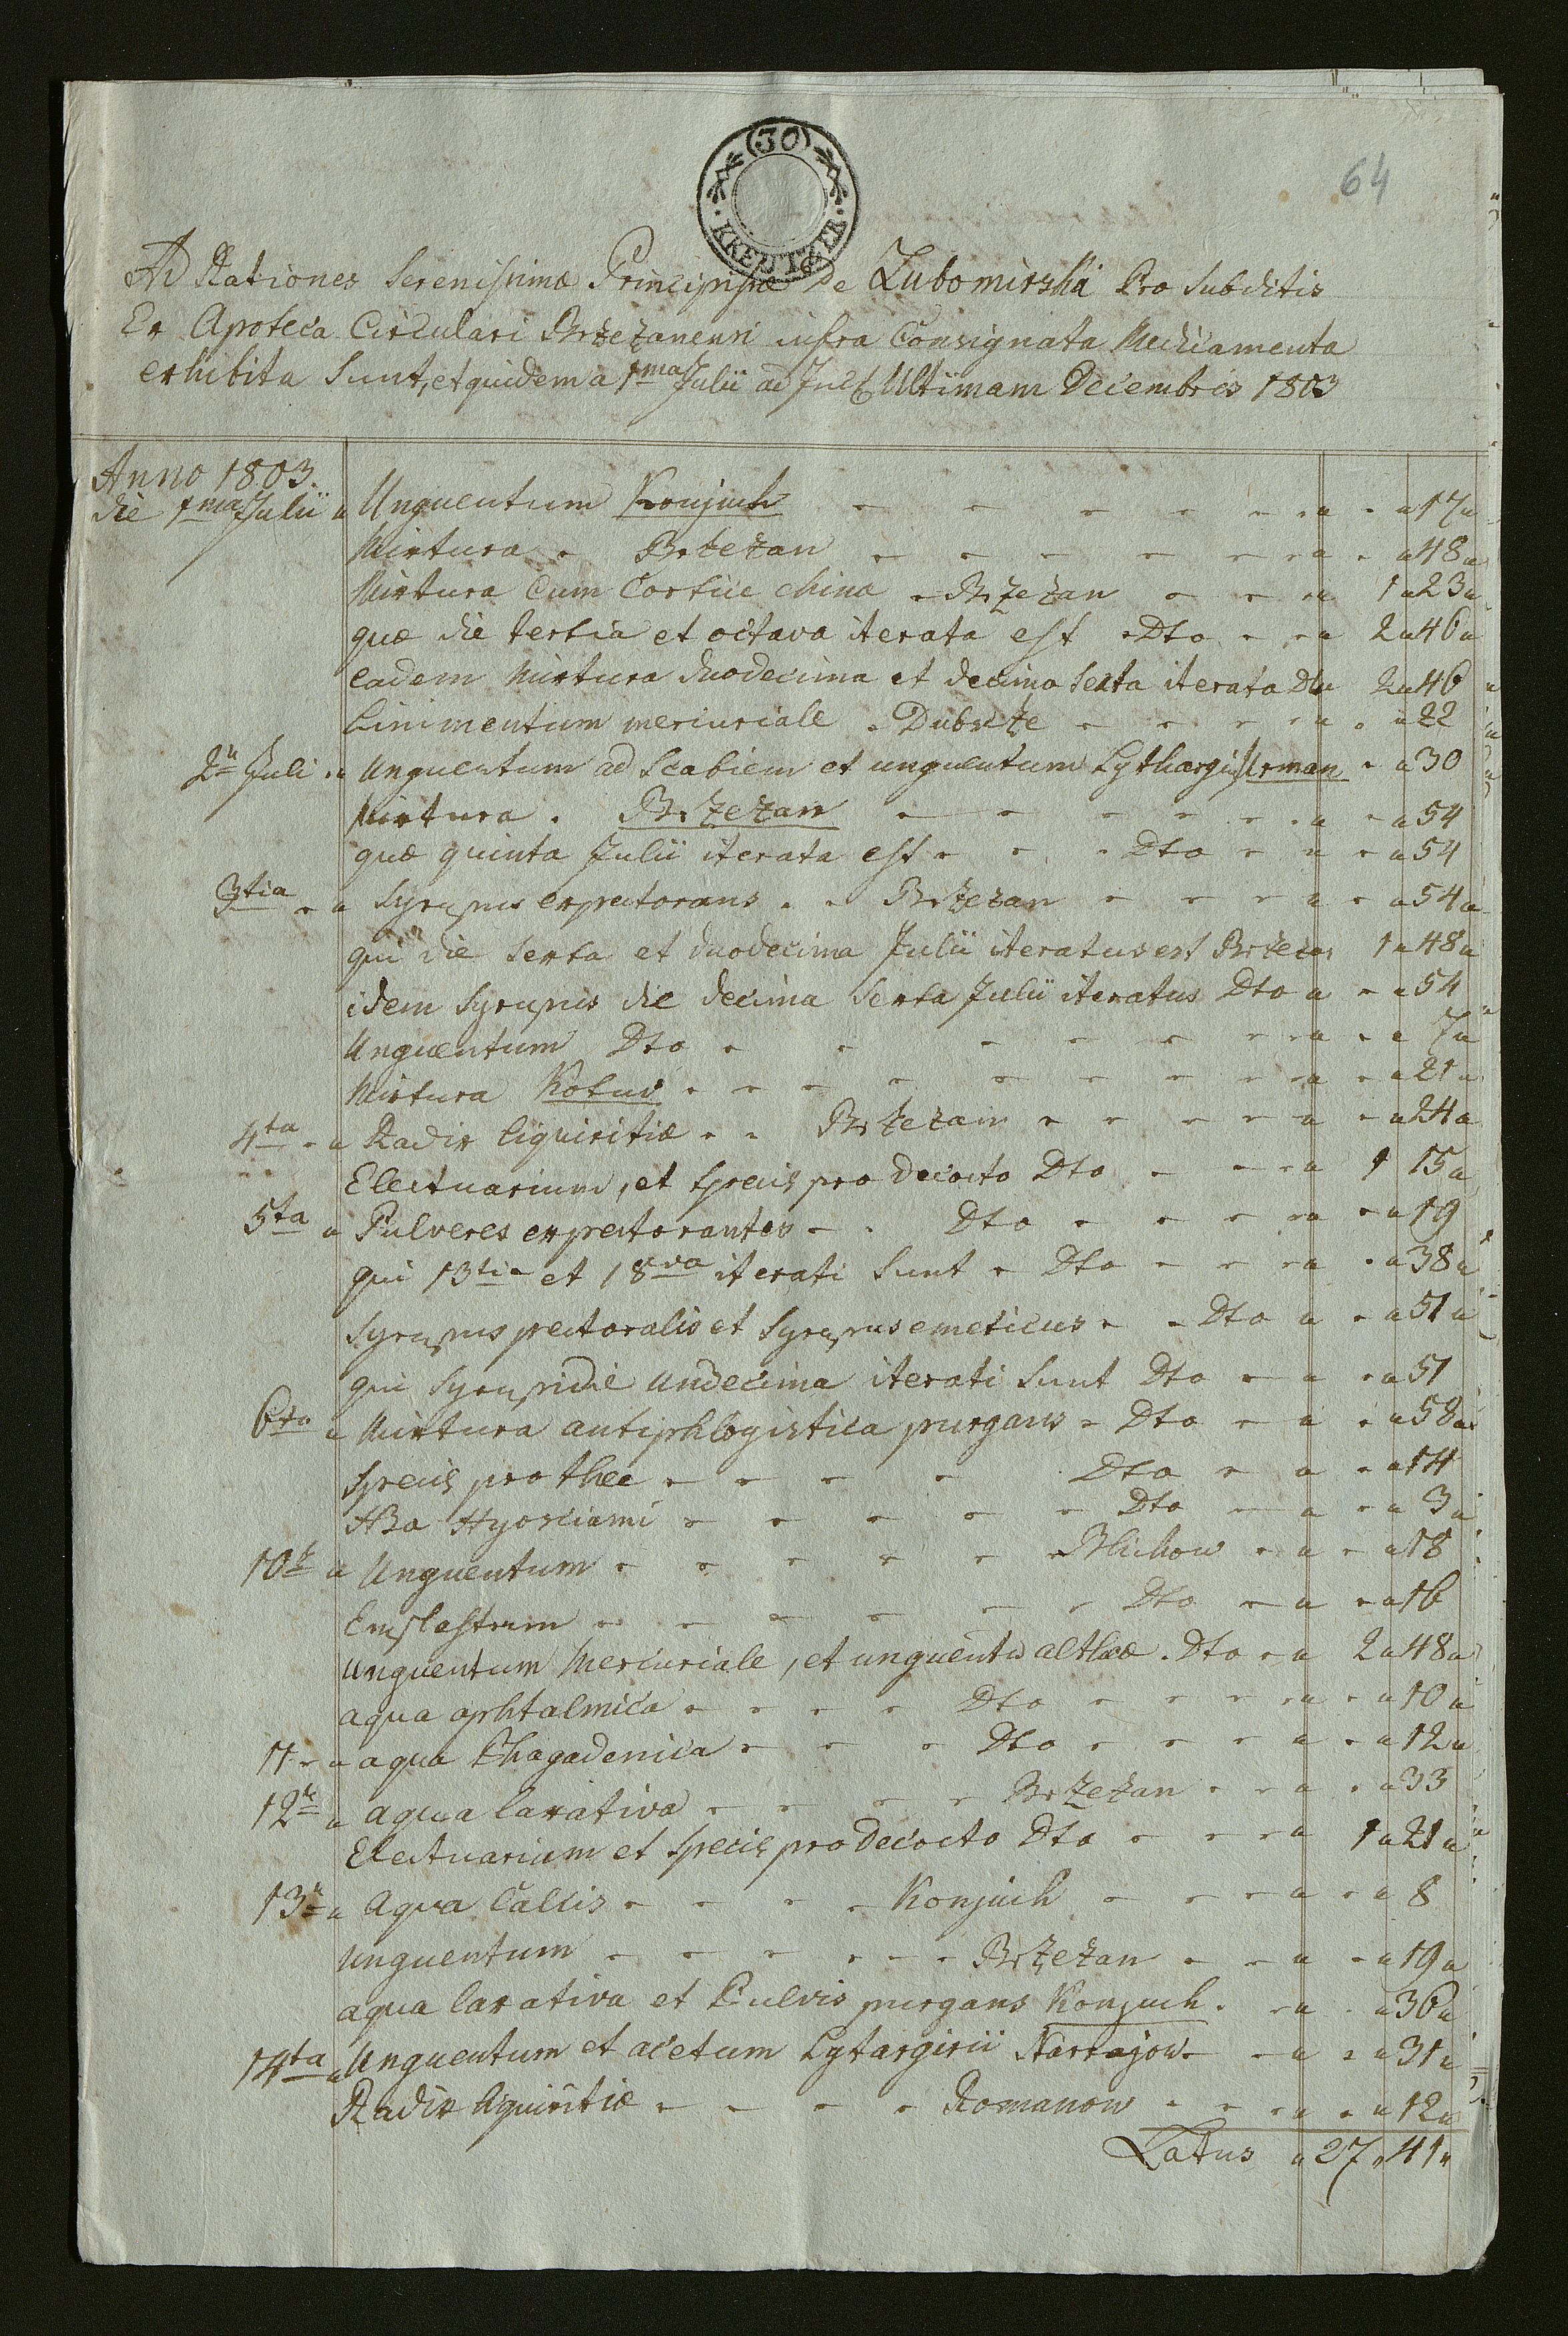 (30)
KREUTZER
64
Ad Rationes Serenissimæ Principissæ De Lubomirska Pro Subditis
Ex Apoteca Circulari Brzezanensi infra Consignata Medicamenta
exhibita Sunt, et quidem a 1ma Julii ad Ultimam Decembris 1803
Anno 1803.
die 1ma Julii " Unguentum Konjuch - - - - - " - " 17 "
Mixtura - Brzezan - - - - - " - " 48 "
Mixtura Cum Cortice chinæ - Brzezan - - - " 1 " 23 "
quæ die tertia et octava iterata est - Dto - - " 2 " 46 "
eadem Mixtura duodecima et decima Sexta iterata Dto 2 " 46
Linimentum mercuriale - Dubszcze - - - - " - " 22
2" Juli - " Unguentum ad Scabiem et unguentum Lythargi Urman - " 30
Mixtura . Brzezan - - - - - - " - " 54
quæ quinta Julii iterata est - - - Dto - " - " 54
3tia - " Syrupus expectorans - - Brzezan - - - - " - " 54 "
qui die Sexta et duodecima Julii iteratus est Brzezan 1 " 48 "
idem Syrupus die decima Sexta Julii iteratus Dto " - " 54
Unguentum Dto - - - - - - - " - " 7 "
Mixtura Kotuv - - - - - - - - " - " 21 "
4ta - " Radix liquiritiæ - - Brzezan - - - - " - " 24 "
Electuarium, et Species pro decocto Dto - - - " 1 15 "
5ta " Pulveres expectorantes - . Dto - - - - " - " 19
qui 13tia et 18va iterati Sunt - Dto - - - " - " 38 "
Syrupus pectoralis et Syrupus emeticus - - Dto " - " 51 "
qui Syrupi die undecima iterati Sunt Dto - " - " 51
6ta " Mixtura antiphlogistica purgans - Dto - " - " 58 "
Species pro thee - - - - Dto - " - " 14
Hba Hyosciami - - - - - Dto - " - " 3 "
10" " Unguentum - - - - - Blichow - " - " 18
Emplastrum - - - - - - Dto - " - " 16
Unguentum Mercuriale, et unguentu altheæ . Dto - " 2 " 48 "
aqua ophtalmica - - - - Dto - - - - " - " 10 "
11 - " aqua Phagadenica - - - Dto - - - " - " 12 "
12" " aqua laxativa - - - - Brzezan - - " - " 33
Electuarium et Species pro Decocto Dto - - - " 1 " 21 "
13" " Aqua Calcis - - - - Konjuch - - - " - " 8
Unguentum - - - - - - Brzezan - - " - " 19 "
aqua laxativa et Pulvis purgans Konjuch . - " - " 36 "
14ta " Unguentum et acetum Lytargirii Narrajow - - " - " 31 "
Radix liquiritiæ - - - - Romanow - - - " - " 12 "
Latus " 27 " 41 "